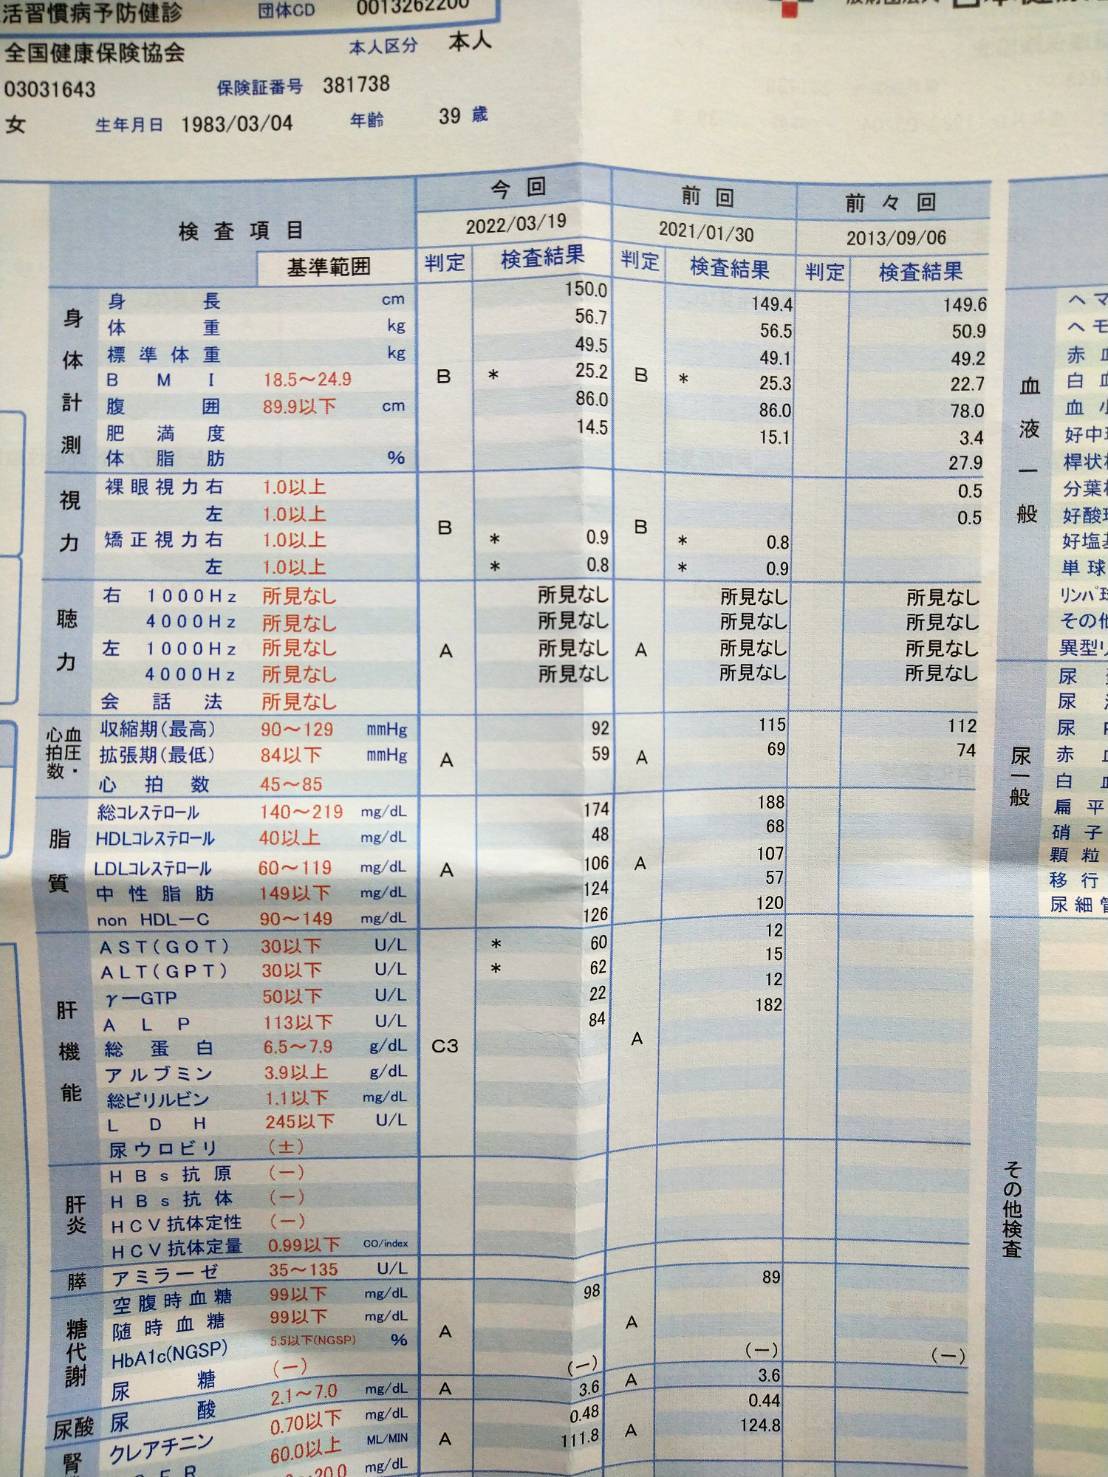 活習慣病予防健診 団体CD 0013262200
全国健康保険協会 本人区分 本人
03031643 保険証番号 381738
女 生年月日 1983/03/04 年齢 39 歳
検査項目 今回 前回 前々回
2022/03/19 2021/01/30 2013/09/06
基準範囲 判定 検査結果 判定 検査結果 判定 検査結果
身体計測
身長 cm 150.0 149.4 149.6
体重 kg 56.7 56.5 50.9
標準体重 kg 49.5 49.1 49.2
BMI 18.5～24.9 B * 25.2 B * 25.3 22.7
腹囲 89.9以下 cm 86.0 86.0 78.0
肥満度 14.5 15.1 3.4
体脂肪 % 27.9
視力
裸眼視力右 1.0以上 0.5
左 1.0以上 B B 0.5
矯正視力右 1.0以上 * 0.9 * 0.8
左 1.0以上 * 0.8 * 0.9
聴力
右 1000Hz 所見なし 所見なし 所見なし 所見なし
4000Hz 所見なし 所見なし 所見なし 所見なし
左 1000Hz 所見なし A 所見なし A 所見なし 所見なし
4000Hz 所見なし 所見なし 所見なし 所見なし
会話法 所見なし
血圧・心拍数
収縮期(最高) 90～129 mmHg 92 115 112
拡張期(最低) 84以下 mmHg A 59 A 69 74
心拍数 45～85
脂質
総コレステロール 140～219 mg/dL 174 188
HDLコレステロール 40以上 mg/dL 48 68
LDLコレステロール 60～119 mg/dL A 106 A 107
中性脂肪 149以下 mg/dL 124 57
non HDL－C 90～149 mg/dL 126 120
肝機能
AST(GOT) 30以下 U/L * 60 12
ALT(GPT) 30以下 U/L * 62 15
γ－GTP 50以下 U/L 22 12
ALP 113以下 U/L 84 182
総蛋白 6.5～7.9 g/dL C3 A
アルブミン 3.9以上 g/dL
総ビリルビン 1.1以下 mg/dL
LDH 245以下 U/L
尿ウロビリ (±)
肝炎
HBs抗原 (－)
HBs抗体 (－)
HCV抗体定性 (－)
HCV抗体定量 0.99以下 CO/index
膵 アミラーゼ 35～135 U/L
糖代謝
空腹時血糖 99以下 mg/dL 98 89
随時血糖 99以下 mg/dL A A
HbA1c(NGSP) 5.5以下(NGSP) %
尿糖 (－) (－) (－) (－)
尿酸 尿酸 2.1～7.0 mg/dL A 3.6 A 3.6
腎
クレアチニン 0.70以下 mg/dL 0.48 0.44
60.0以上 ML/MIN A 111.8 A 124.8
20.0 mg/dL
血液一般
ヘマ
ヘモ
赤血
白血
血小
好中球
桿状核
分葉核
好酸球
好塩基
単球
リンパ球
その他
異型リ
尿一般
尿
尿
尿
赤血
白血
扁平
硝子
顆粒
移行
尿細管
その他検査